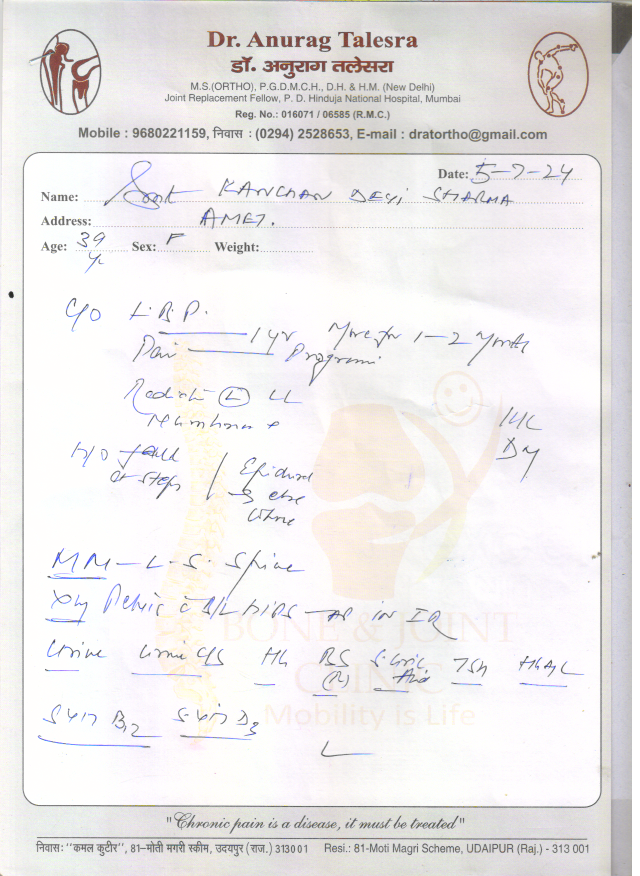 Dr. Anurag Talesra
डॉ. अनुराग तलेसरा
M.S.(ORTHO), P.G.D.M.C.H., D.H. & H.M. (New Delhi)
Joint Replacement Fellow, P. D. Hinduja National Hospital, Mumbai
Reg. No.: 016071 / 06585 (R.M.C.)
Mobile : 9680221159, निवास : (0294) 2528653, E-mail : dratortho@gmail.com
Date: 5-7-24
Name: Smt KANCHAN DEVI SHARMA
Address: AMET.
Age: 39 Yr Sex: F Weight:
C/O L.B.P.
Pain 1 yr More for 1-2 Month
Radiat (L) LL
Numbness +
H/O
steps Epidural
else
where
L-S. Spine
Xray Pelvis c B/L HIPS - AP IN IR
BONE & JOINT
CLINIC
Urine Urine C/S Hb BS (R) S. Uric Acid TSH HbA1C
Mobility is Life
S. Vit B12 S. Vit D3
"Chronic pain is a disease, it must be treated"
निवास: "कमल कुटीर", 81-मोती मगरी स्कीम, उदयपुर (राज.) 313001 Resi.: 81-Moti Magri Scheme, UDAIPUR (Raj.) - 313 001